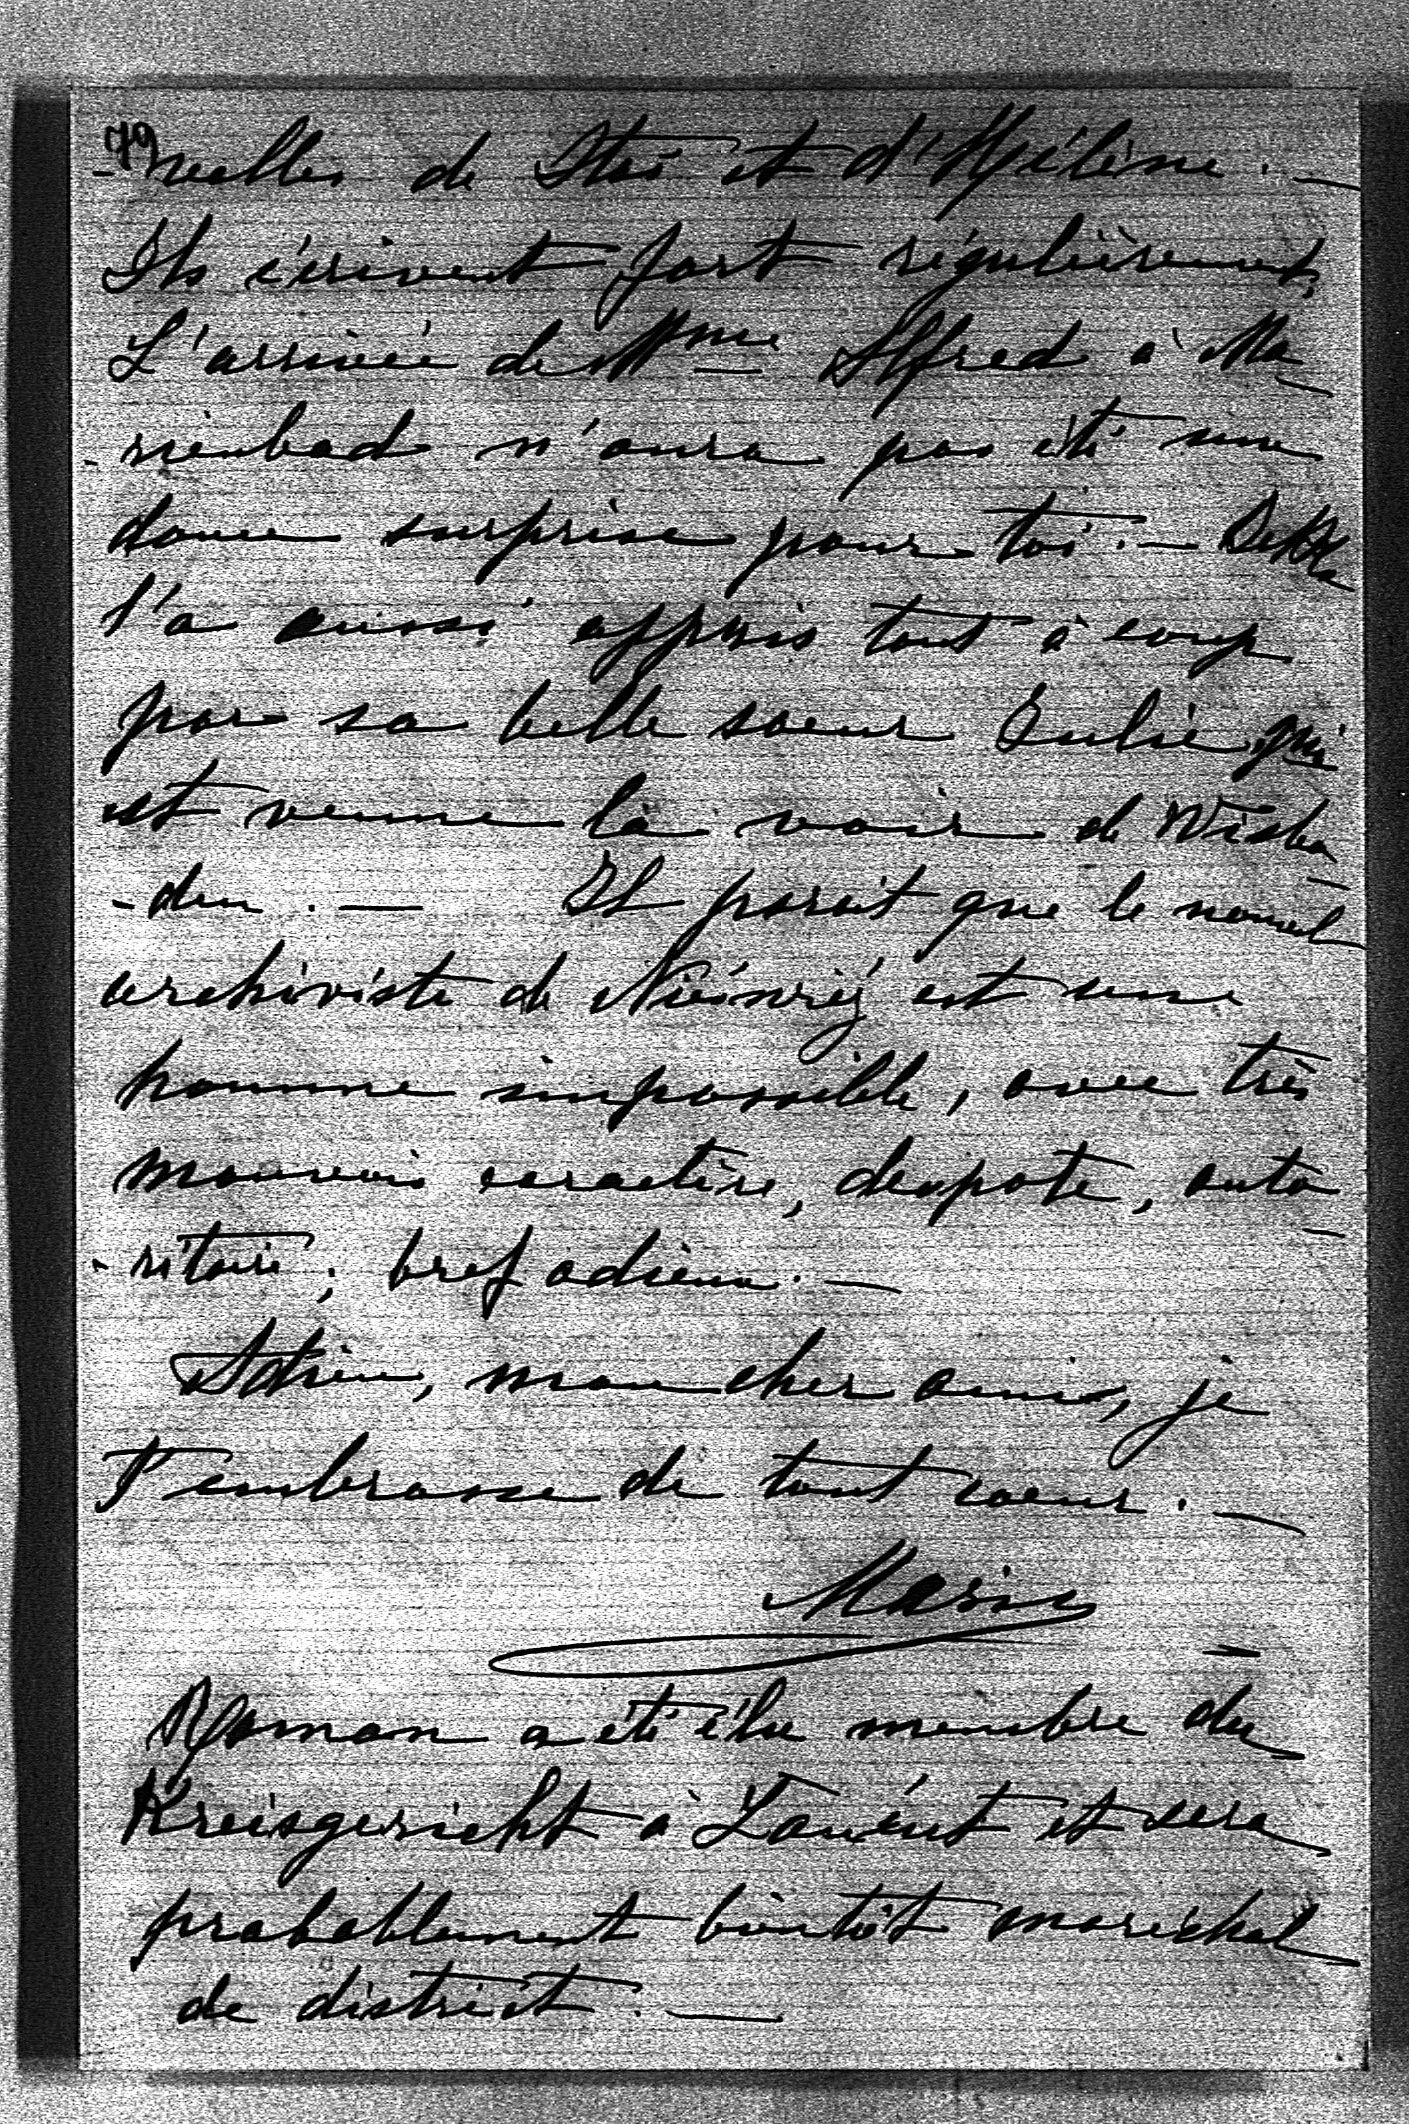 79
-velles de Stas et d'Hélène. —
Ils s'écrivent fort régulièrement,
L'arrivée de Mme Alfred à Ma
-rienbad n'aura pas été une
douce surprise pour toi. — Bettka
l'a aussi appris tout à coup
par sa belle soeur Julie, qui
est venue la voir de Wisba
-den. — Il parait que le nouvel
archiviste de Nieśwież est une
homme impossible, avec très
mauvais caractère, despote, auto
-ritaire, bref odieux. —
Adieu, mon cher ami, je
t'embrasse de tout coeur. —
Marie
Roman a été élu membre du
Kreisgericht à Łańcut et sera
probablement bientôt maréchal
de district. —